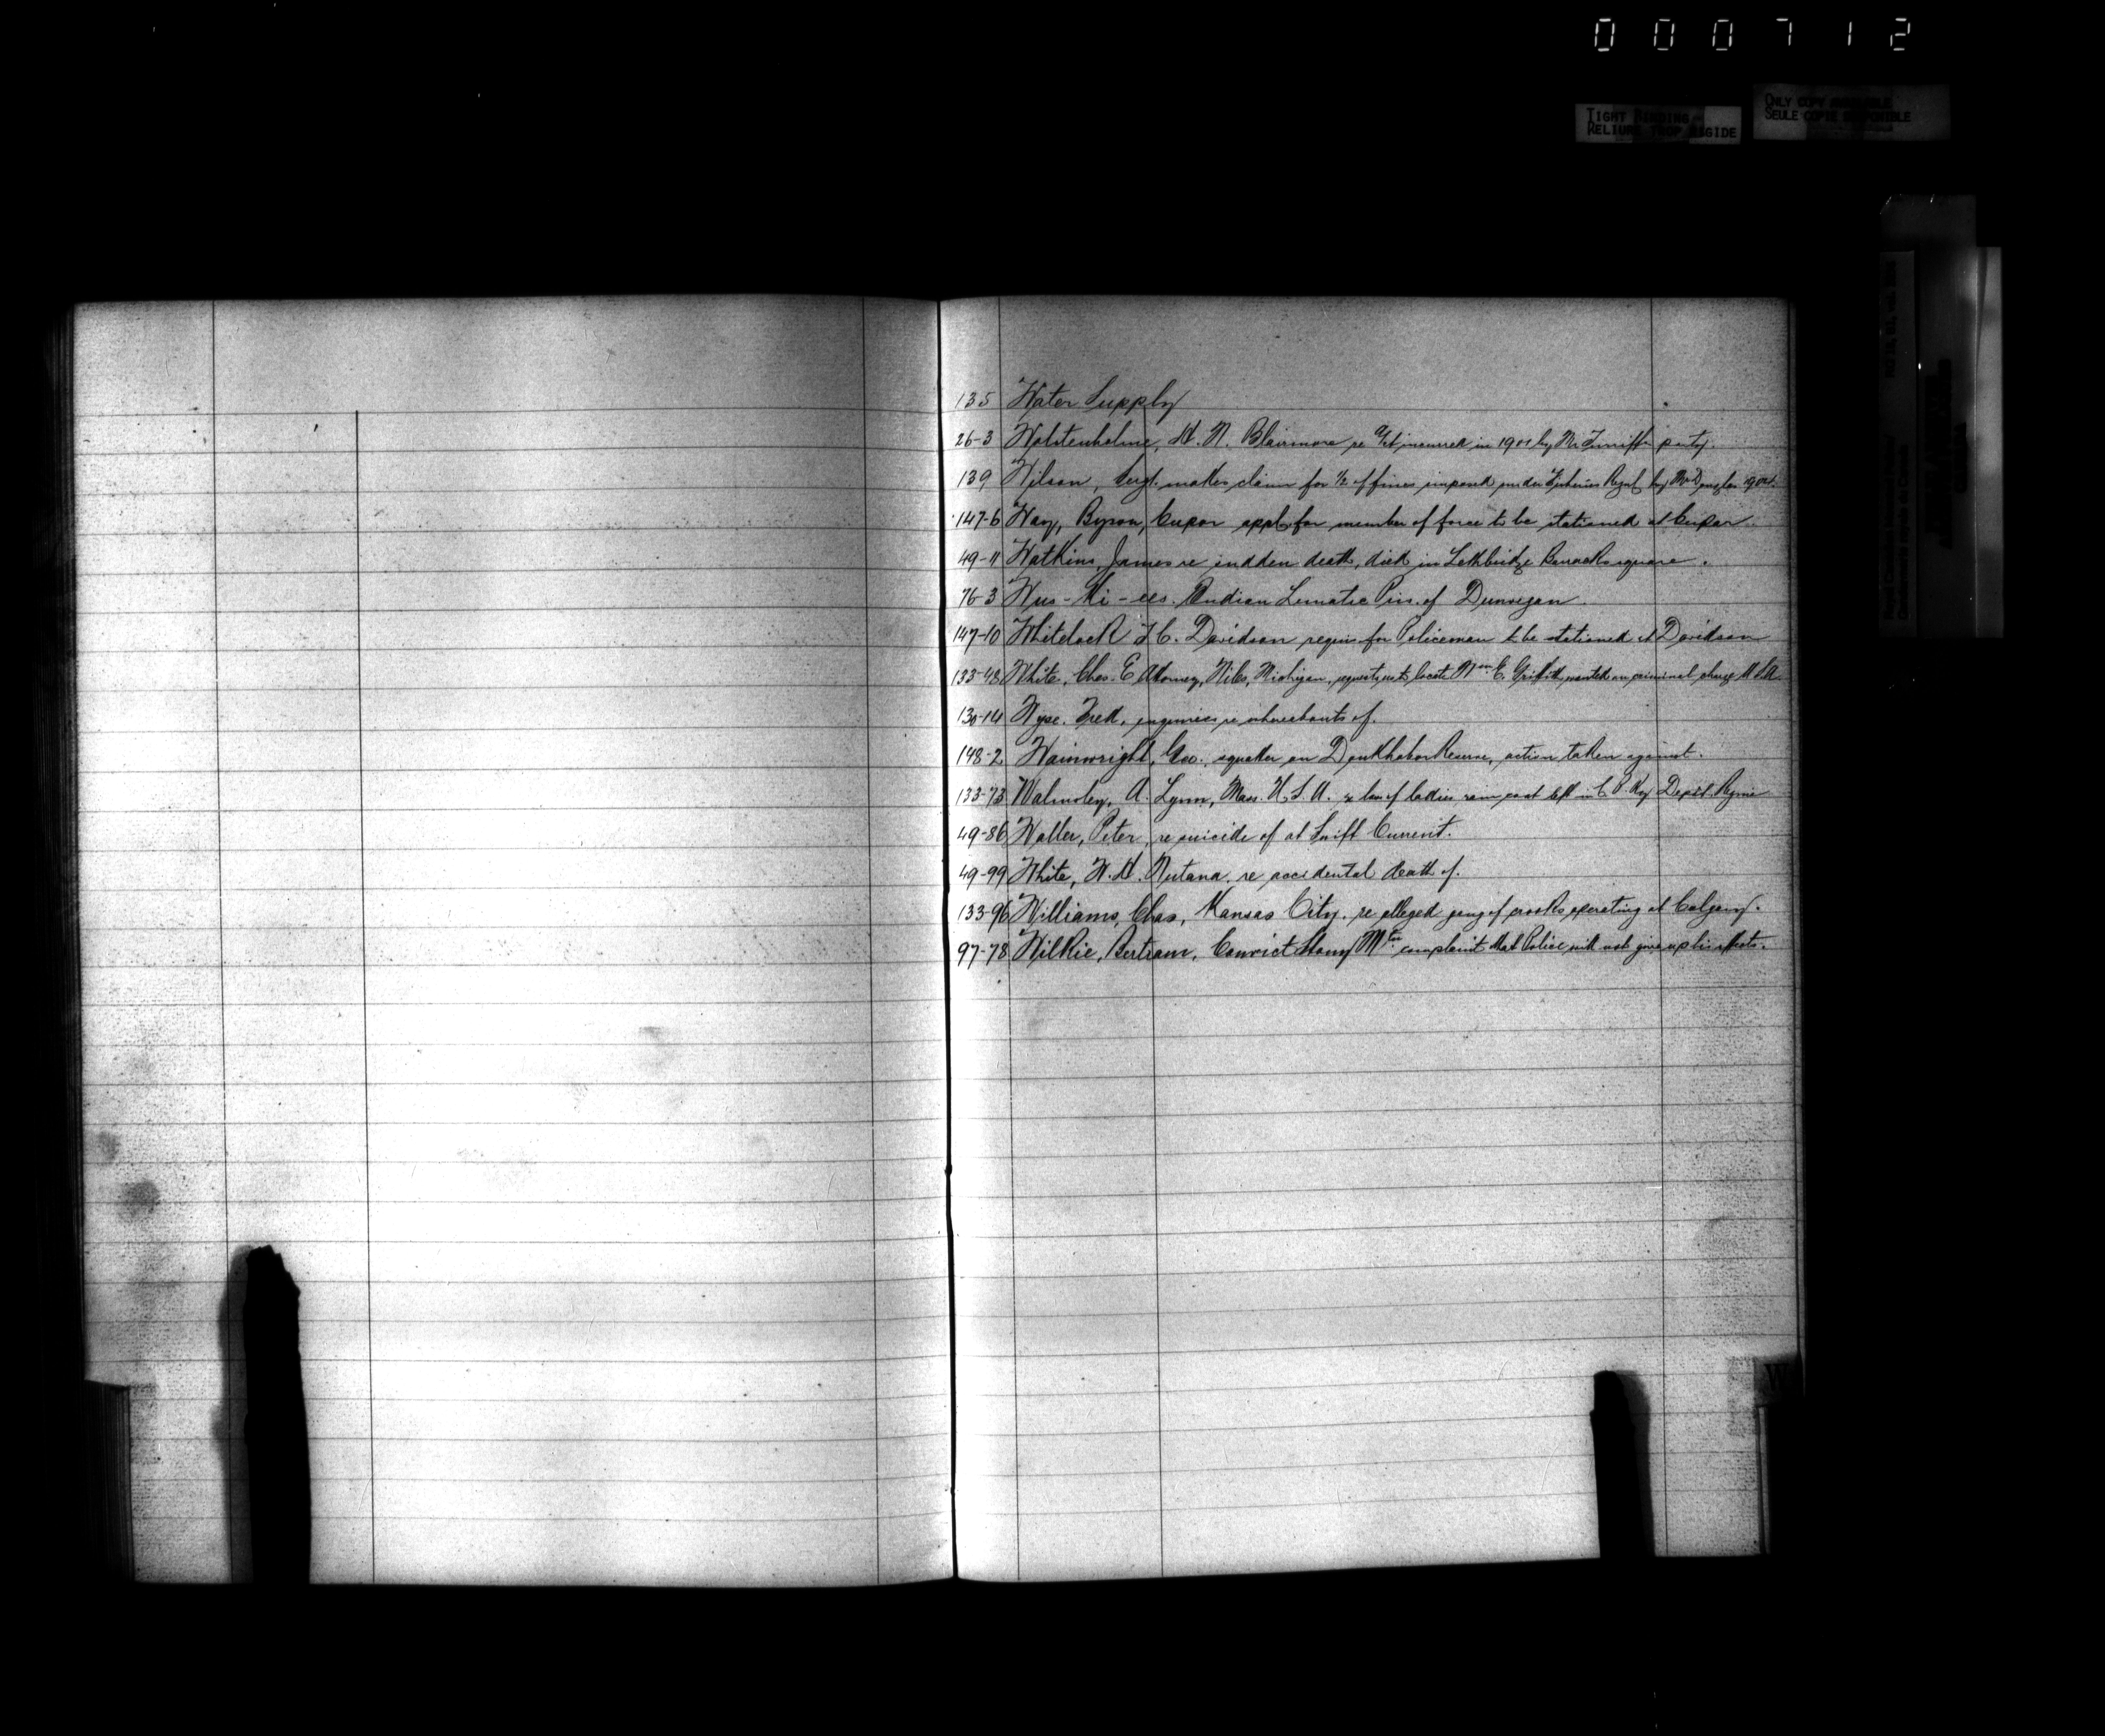 000712
TIGHT BINDING
RELIURE TROP RIGIDE
ONLY COPY AVAILABLE
SEULE COPIE DISPONIBLE
135 Water Supply
26-3 Wolstenholme, H. N. Blairmore re incurred in 1901 by Mr party.
139 Wilson, Sergt. makes claim for 1/2 of fines imposed under Fisheries Regul by
147-6 Way, Byron, Cupar appl. for member of force to be stationed at Cupar
49-11 Watkins, James re sudden death, died in Lethbridge Barrack square.
76-3 Wus-Ki-ees. Indian Lunatic Pris. of Dunvegan.
147-10 Whitelock J. C. Davidson requis for Policeman to be stationed at Davidson
133-48 White, Chas. E. Attorney, Niles, Michigan, requests us to locate Wm C. Griffith wanted on criminal charge U.S.A.
130-14 Wyse. Fred, enquiries re whereabouts of.
148-2 Wainwright, Geo., squatter on Doukhobor Reserve, action taken against.
133-73 Walmsley, A. Lynn, Mass. U.S.A. re loss of ladies rain coat left in C. P. Ry Depot. Regina
49-86 Waller, Peter, re suicide of at Swift Current.
49-99 White, W. H. Nutana. re accidental death of.
133-96 Williams, Chas, Kansas City. re alleged gang of crooks operating at Calgary.
97-78 Wilkie, Bertram, Convict Stony Mtn complaint that Police will not give up his effects.
W